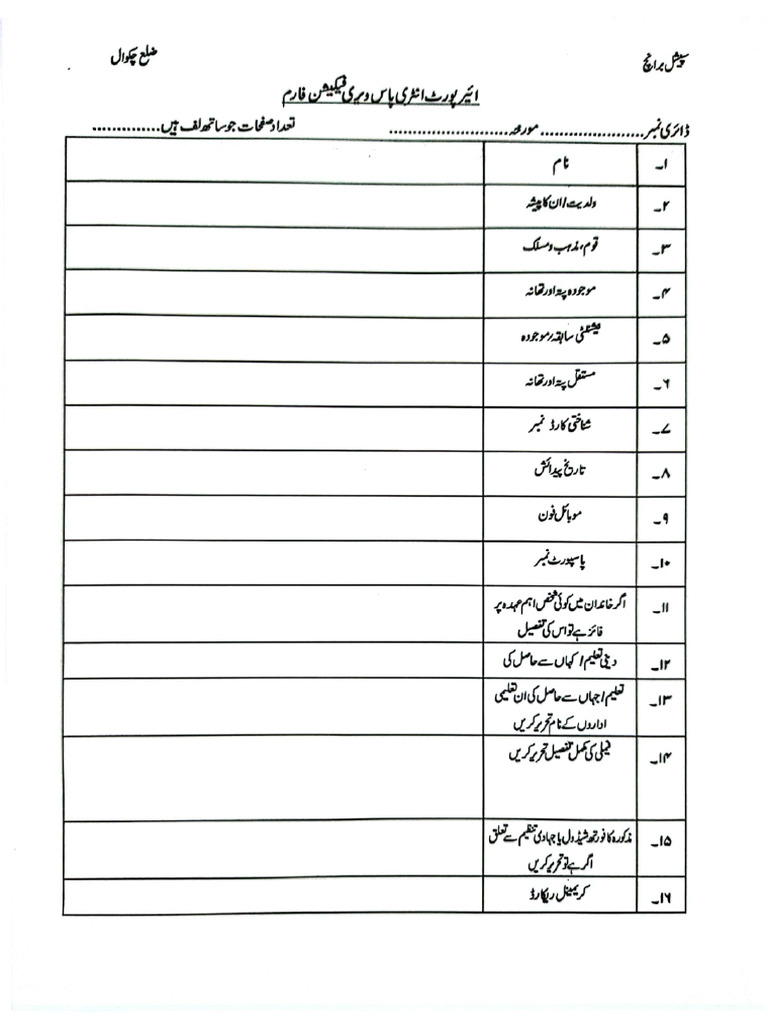 سپیشل برانچ ضلع چکوال
ائیرپورٹ انٹری پاس ویری فیکیشن فارم
ڈائری نمبر...................... مورخہ.......................... تعداد صفحات جو ساتھ لف ہیں...............
۱۔ نام
۲۔ ولدیت/ان کا پیشہ
۳۔ قوم، مذہب و مسلک
۴۔ موجودہ پتہ اور تھانہ
۵۔ نیشنلٹی سابقہ/موجودہ
۶۔ مستقل پتہ اور تھانہ
۷۔ شناختی کارڈ نمبر
۸۔ تاریخ پیدائش
۹۔ موبائل فون
۱۰۔ پاسپورٹ نمبر
۱۱۔ اگر خاندان میں کوئی شخص اہم عہدہ پر
فائز ہے تو اس کی تفصیل
۱۲۔ دینی تعلیم/کہاں سے حاصل کی
۱۳۔ تعلیم/جہاں سے حاصل کی ان تعلیمی
اداروں کے نام تحریر کریں
۱۴۔ فیملی کی مکمل تفصیل تحریر کریں
۱۵۔ مذکورہ کا فورتھ شیڈول یا جہادی تنظیم سے تعلق
اگر ہے تو تحریر کریں
۱۶۔ کریمینل ریکارڈ